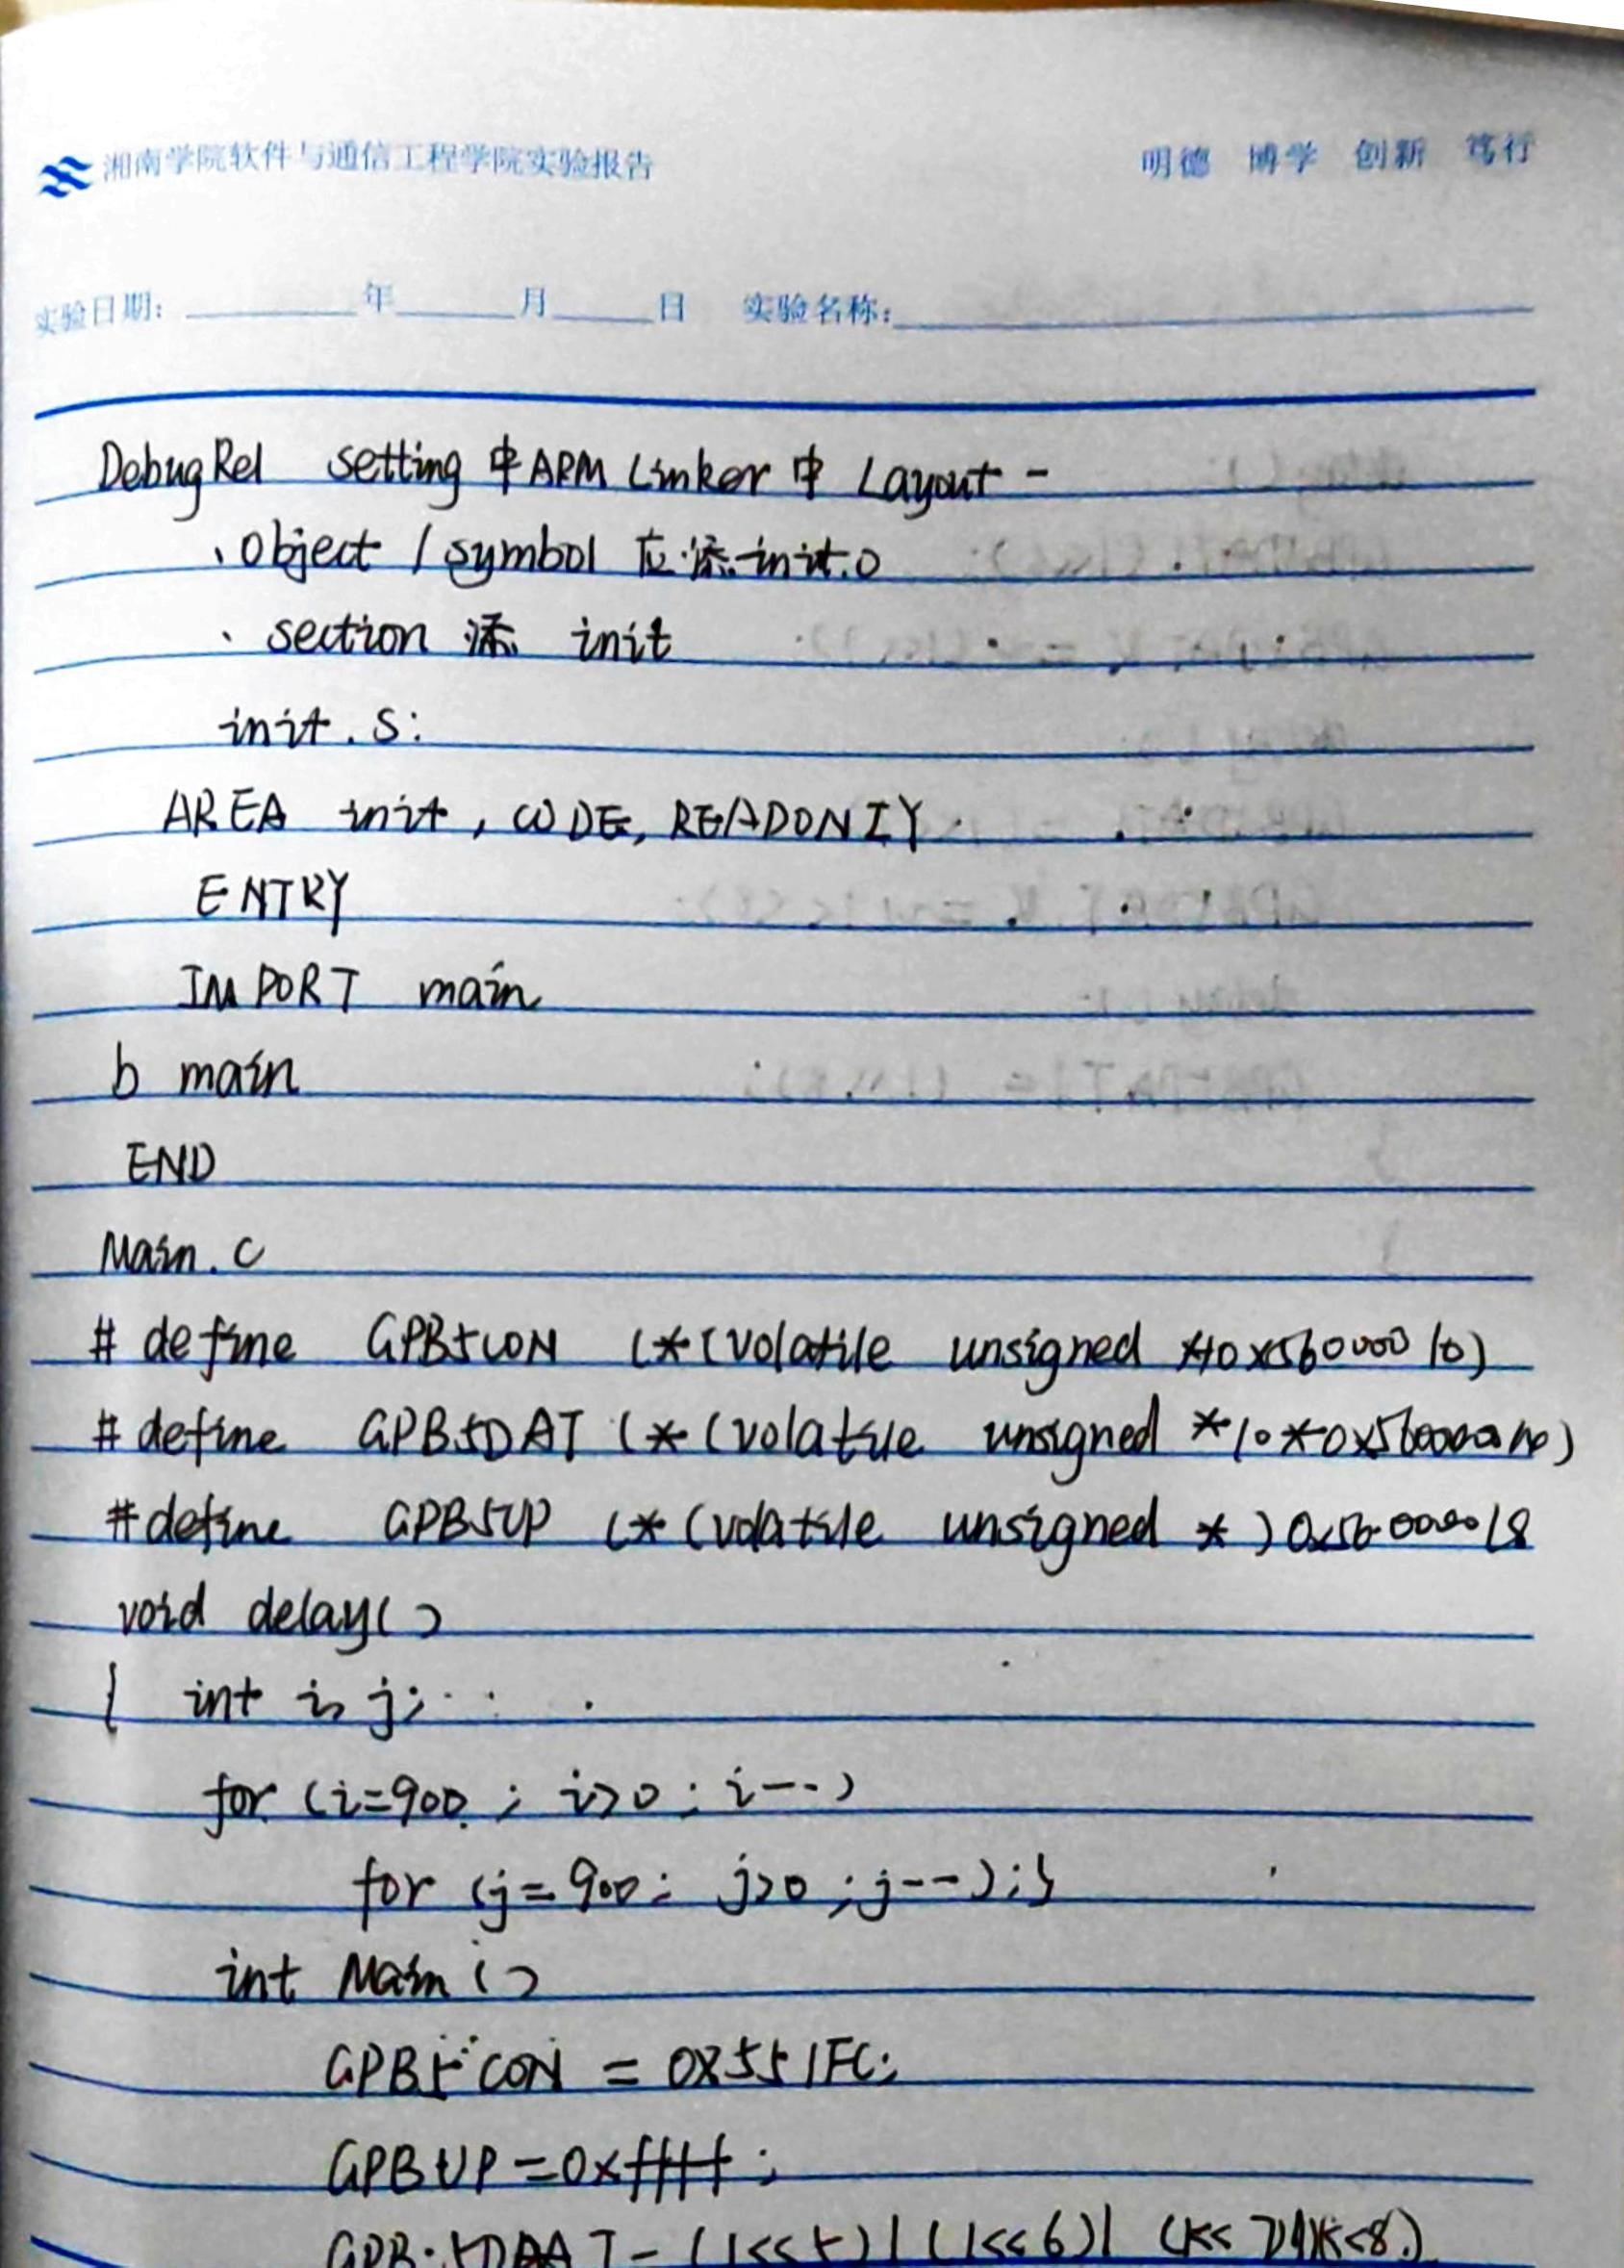 湘南学院软件与通信工程学院实验报告 明德 博学 创新 笃行
实验日期: 年 月 日 实验名称:
DebugRel setting 中 ARM Linker 中 Layout -
、object / symbol 应添 init.o
、section 添 init
init.s:
AREA init, CODE, READONIY
ENTRY
IMPORT main
b main
END
Main.c
# define GPB5CON (*(volatile unsigned *)0x56000010)
# define GPB5DAT (*(volatile unsigned
#define GPB5UP (*(volatile unsigned *)0x56000018
void delay()
{ int i, j;
for (i=900; i>0; i--)
for (j=900; j>0; j--);}
int Main()
GPB5CON = 0x551FC;
GPBUP=0xffff;
(1<<5)|(1<<6)|